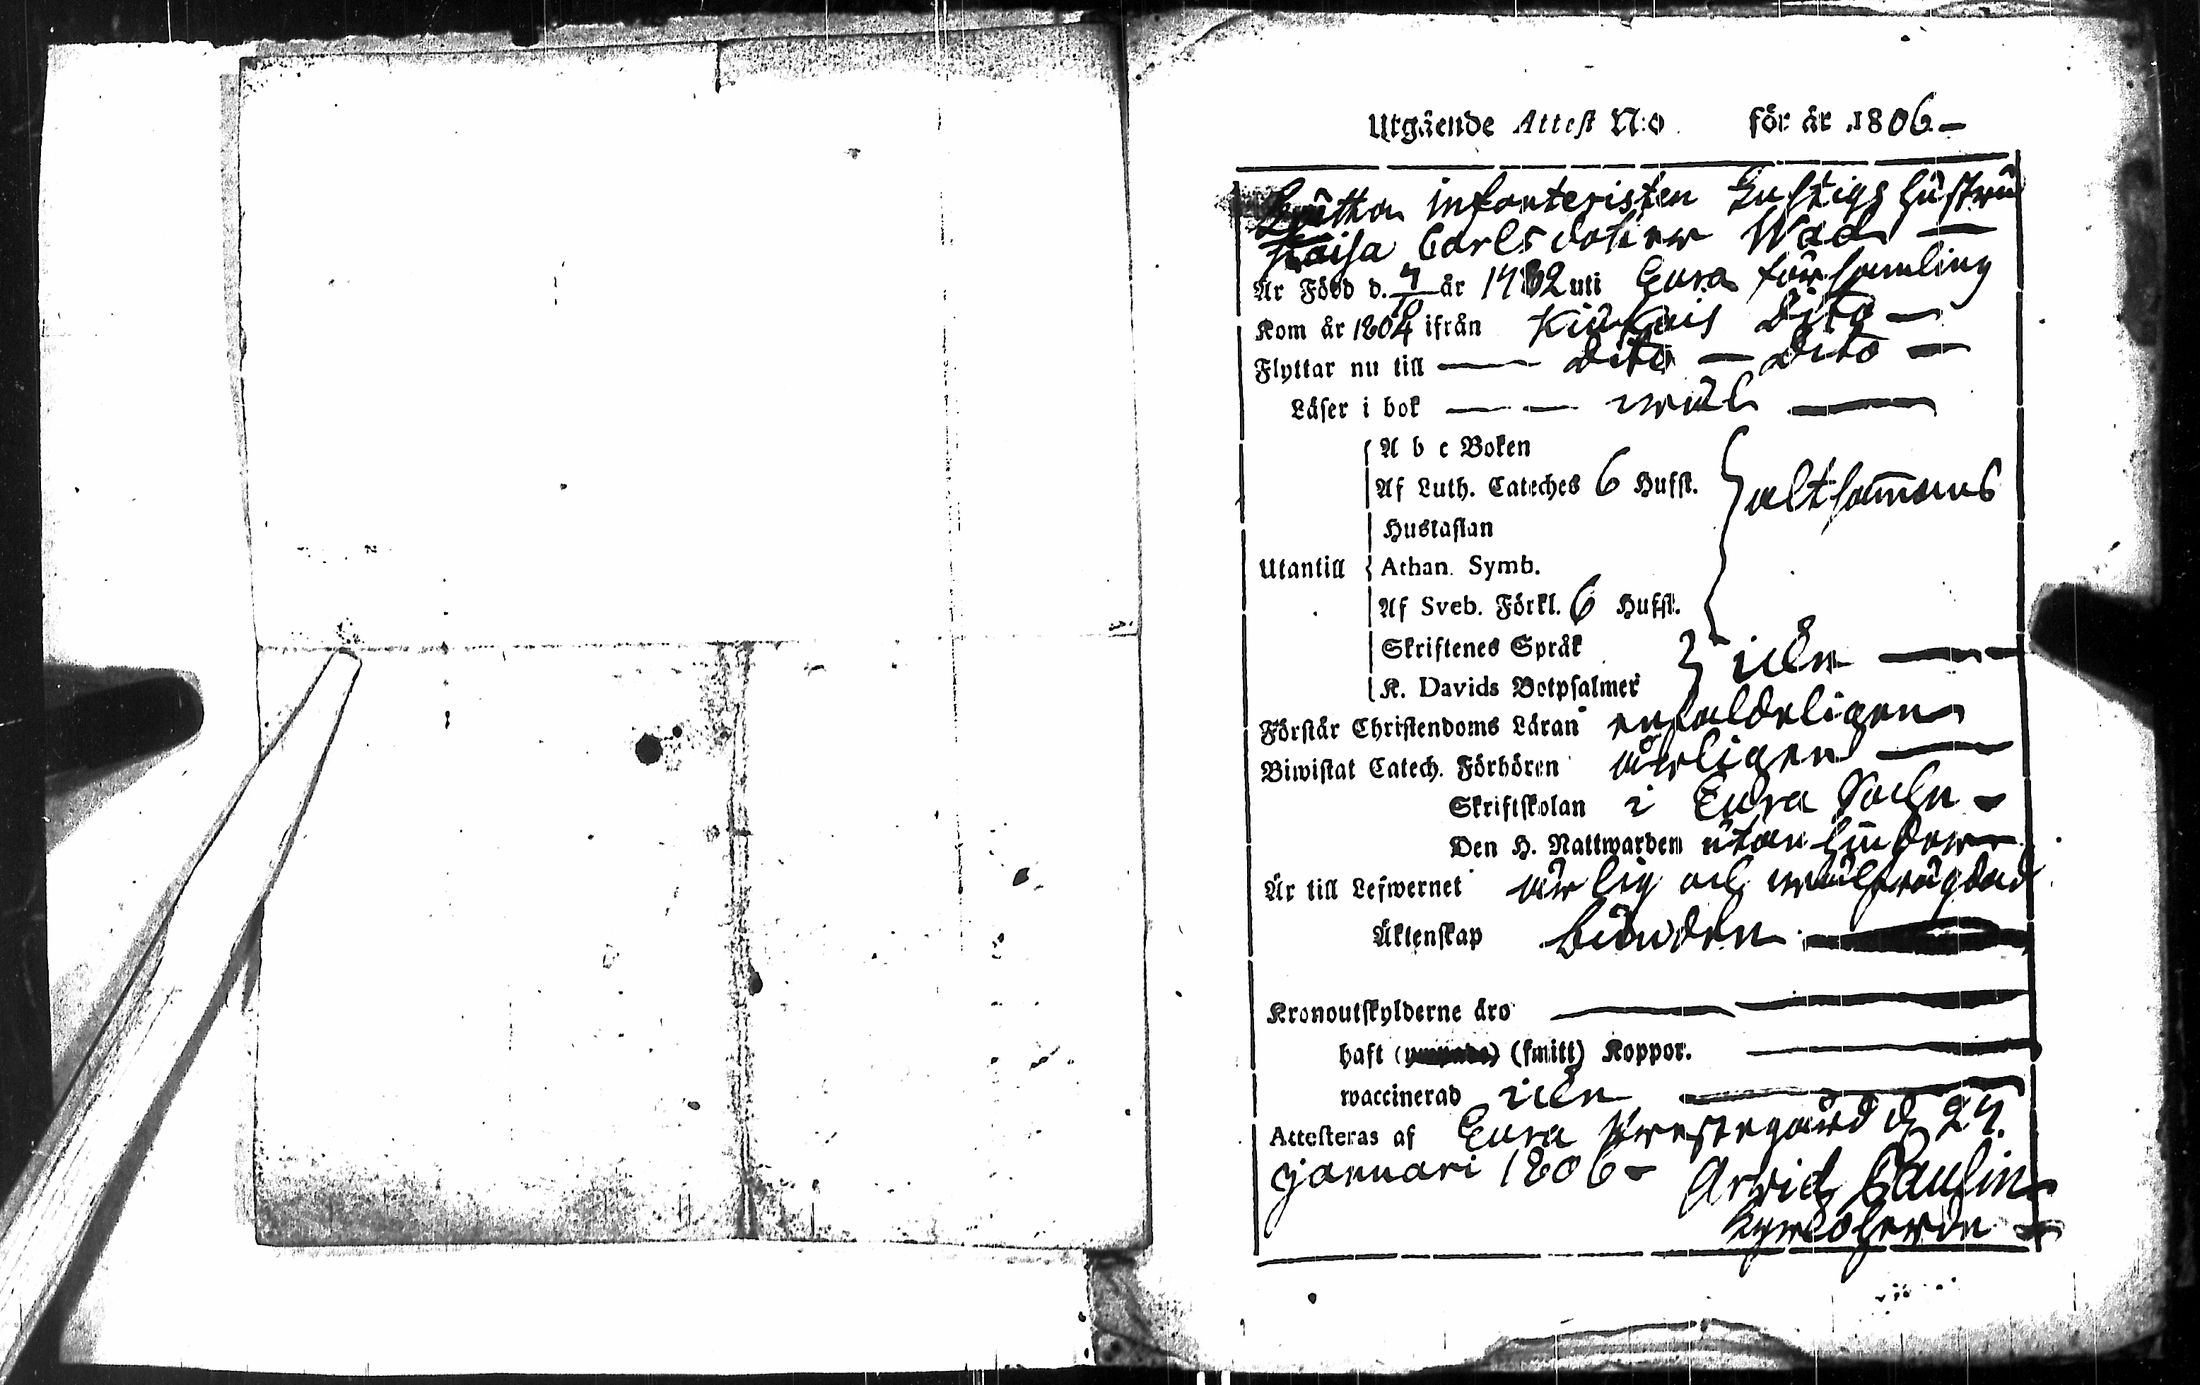 Utgående Attest N:o för år 1806 —
Lätta infanteristen Lustigs hustru
Kaisa Carlsdotter Wad —
Är Född d. 7/10 år 1782 uti Eura församling
Kom år 1804 ifrån Kiukais Dito —
Flyttar nu till — Dito — Dito —
Läser i bok — — wäl —
A b c Boken
Af Luth. Cateches 6 Hufst. altsammans
Hustaflan
Utantill Athan. Symb.
Af Sveb. Förkl. 6 Hufst.
Skriftenes Språk
icke —
K. Davids Botpsalmer
Förstår Christendoms Läran enfaldeligen
Biwistat Catech. Förhören årligen —
Skriftskolan i Eura Sochn —
Den H. Nattwarden utan hinder
Är till Lefwernet ärlig och wälfrägdad
Äktenskap bunden —
Kronoutskylderne äro —
haft (smitt) Koppor. —
waccinerad icke —
Attesteras af Eura Prestegård d. 27.
Januari 1806 — Arvid Paulin
Kyrkoherde